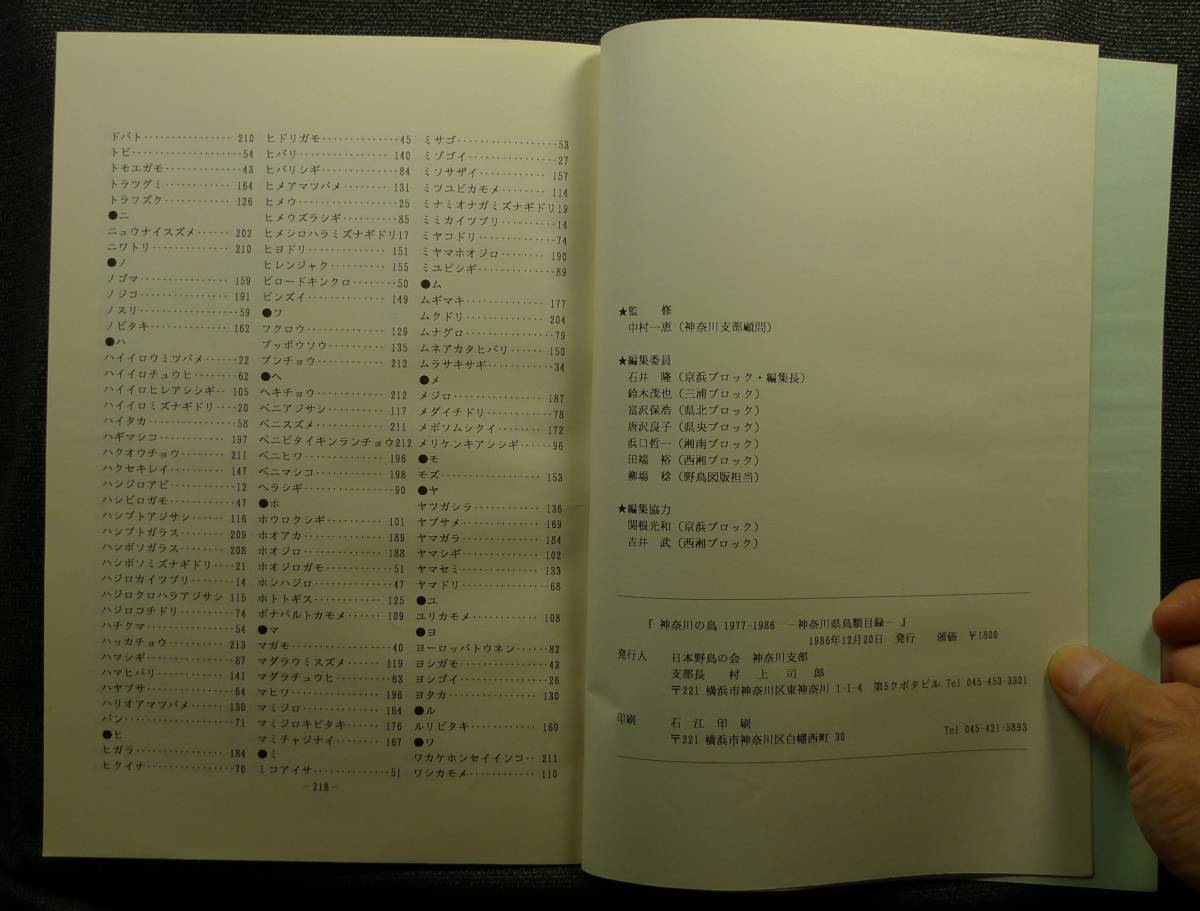 ドバト……………… 210
トビ……………………54
トモエガモ……………43
トラツグミ………… 164
トラフズク………… 126
●ニ
ニュウナイスズメ…… 202
ニワトリ…………… 210
●ノ
ノゴマ……………… 159
ノジコ……………… 191
ノスリ…………………59
ノビタキ…………… 162
●ハ
ハイイロウミツバメ……22
ハイイロチュウヒ………62
ハイイロヒレアシシギ‥ 105
ハイイロミズナギドリ…20
ハイタカ………………58
ハギマシコ………… 197
ハクオウチョウ…… 211
ハクセキレイ……… 147
ハシジロアビ…………12
ハシビロガモ…………47
ハシブトアジサシ…… 116
ハシブトガラス…… 209
ハシボソガラス…… 208
ハシボソミズナギドリ…21
ハジロカイツブリ………14
ハジロクロハラアジサシ 115
ハジロコチドリ…………74
ハチクマ………………54
ハッカチョウ……… 213
ハマシギ………………87
ハマヒバリ………… 141
ハヤブサ………………64
ハリオアマツバメ…… 130
バン……………………71
●ヒ
ヒガラ……………… 184
ヒクイナ………………70
ヒドリガモ……………45
ヒバリ……………… 140
ヒバリシギ……………84
ヒメアマツバメ…… 131
ヒメウ…………………25
ヒメウズラシギ………85
ヒメシロハラミズナギドリ17
ヒヨドリ…………… 151
ヒレンジャク……… 155
ビロードキンクロ………50
ビンズイ…………… 149
●フ
フクロウ…………… 129
ブッポウソウ……… 135
ブンチョウ………… 212
●ヘ
ヘキチョウ………… 212
ベニアジサシ……… 117
ベニスズメ………… 211
ベニビタイキンランチョウ212
ベニヒワ…………… 196
ベニマシコ………… 198
ヘラシギ………………90
●ホ
ホウロクシギ……… 101
ホオアカ…………… 189
ホオジロ…………… 188
ホオジロガモ…………51
ホシハジロ……………47
ホトトギス………… 125
ボナパルトカモメ…… 109
●マ
マガモ…………………40
マダラウミスズメ…… 119
マダラチュウヒ…………63
マヒワ……………… 196
マミジロ…………… 164
マミジロキビタキ…… 176
マミチャジナイ…… 167
●ミ
ミコアイサ……………51
ミサゴ…………………53
ミゾゴイ………………27
ミソサザイ………… 157
ミツユビカモメ…… 114
ミナミオナガミズナギドリ19
ミミカイツブリ…………14
ミヤコドリ……………74
ミヤマホオジロ…… 190
ミユビシギ……………89
●ム
ムギマキ…………… 177
ムクドリ…………… 204
ムナグロ………………79
ムネアカタヒバリ…… 150
ムラサキサギ…………34
●メ
メジロ……………… 187
メダイチドリ…………78
メボソムシクイ…… 172
メリケンキアシシギ……96
●モ
モズ………………… 153
●ヤ
ヤツガシラ………… 136
ヤブサメ…………… 169
ヤマガラ…………… 184
ヤマシギ…………… 102
ヤマセミ…………… 133
ヤマドリ………………68
●ユ
ユリカモメ………… 108
●ヨ
ヨーロッパトウネン……82
ヨシガモ………………43
ヨシゴイ………………26
ヨタカ……………… 130
●ル
ルリビタキ………… 160
●ワ
ワカケホンセイインコ‥ 211
ワシカモメ………… 110
－218－
★監　修
中村一恵（神奈川支部顧問）
★編集委員
石井　隆（京浜ブロック・編集長）
鈴木茂也（三浦ブロック）
富沢保浩（県北ブロック）
唐沢良子（県央ブロック）
浜口哲一（湘南ブロック）
田端　裕（西湘ブロック）
柳場　稔（野鳥図版担当）
★編集協力
関根光和（京浜ブロック）
吉井　武（西湘ブロック）
『 神奈川の鳥 1977-1986　－神奈川県鳥類目録－ 』
1986年12月20日　発行　頒価　￥1800
発行人　日本野鳥の会　神奈川支部
支部長　村　上　司　郎
〒221 横浜市神奈川区東神奈川 1-1-4　第5クボタビル Tel 045-453-3301
印刷　石　江　印　刷
〒221 横浜市神奈川区白幡西町 30　Tel 045-421-5893